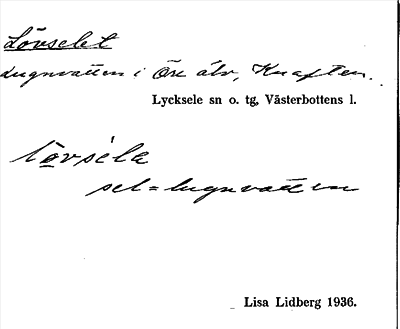 Lövselet
Lugnvatten i Öre älv, Knaften.
Lycksele sn o. tg, Västerbottens l.
lövsèla
sel = lugnvatten
Lisa Lidberg 1936.